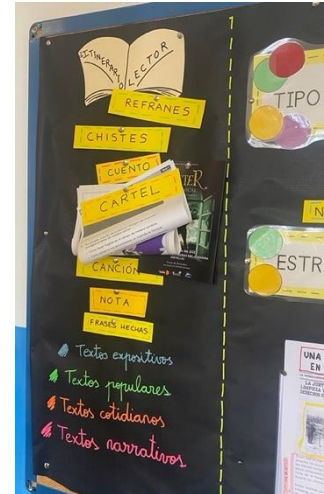 ITINERARIO LECTOR
REFRANES
CHISTES
CUENTO
CARTEL
CANCIÓN
NOTA
FRASES HECHAS
Textos expositivos
Textos populares
Textos cotidianos
Textos narrativos
TIPO
ESTR
UNA
EN